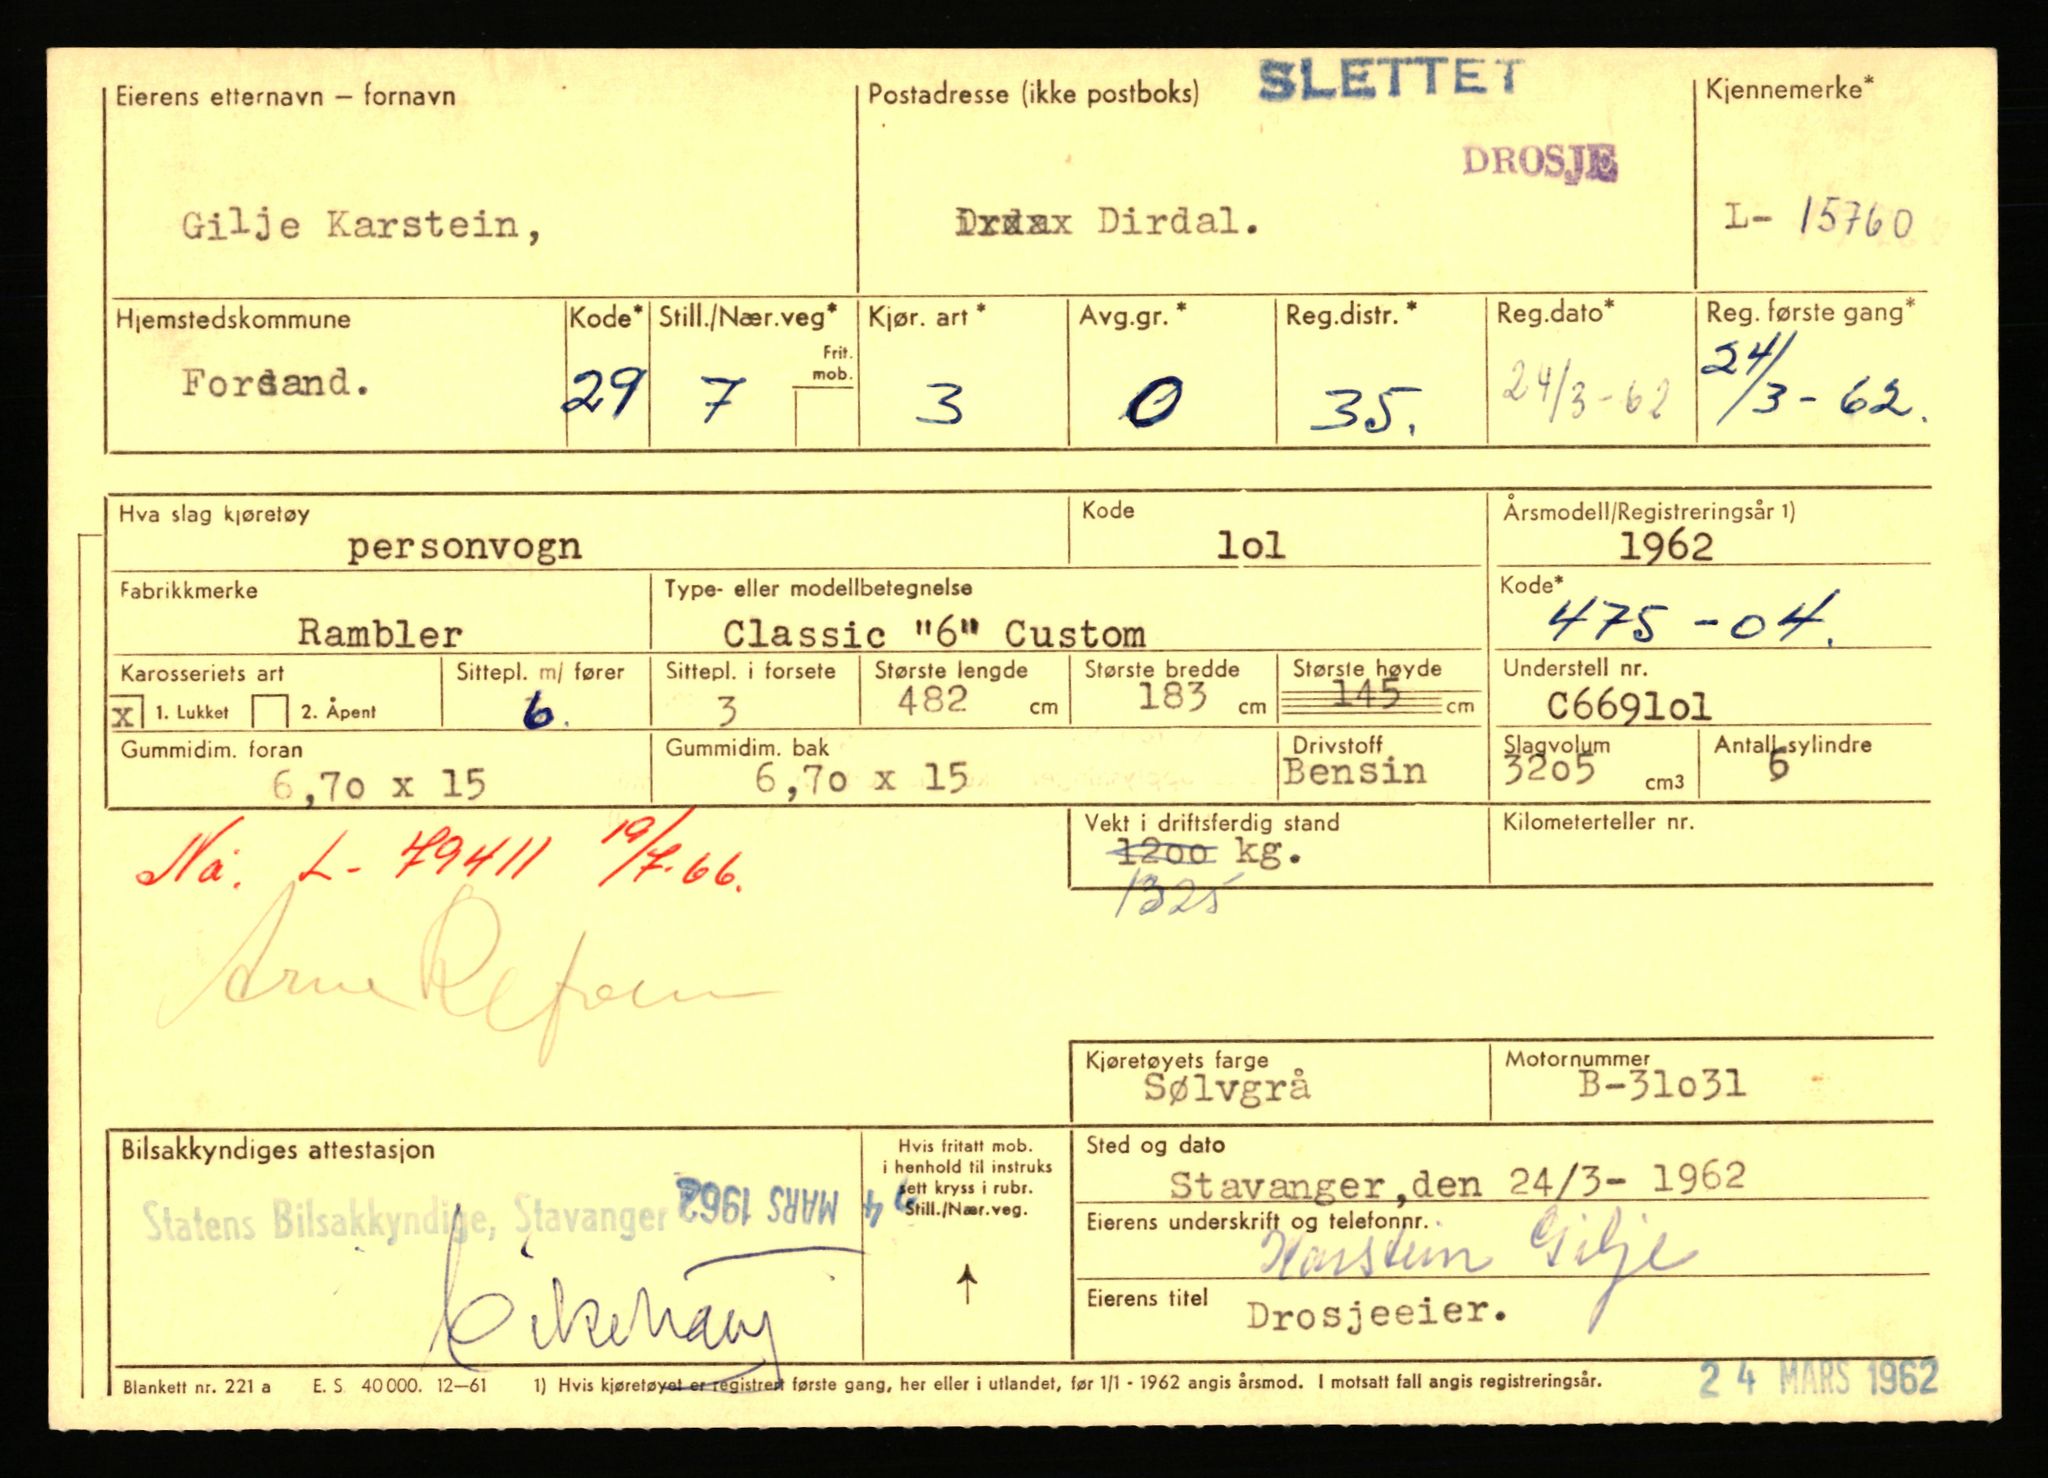 SLETTET
Eierens etternavn – fornavn
Postadresse (ikke postboks)
Kjennemerke*
DROSJE
Gilje Karstein,
Dirdal.
L- 15760
Hjemstedskommune
Kode*
Still./Nær.veg*
Kjør. art*
Avg.gr.*
Reg.distr.*
Reg.dato*
Reg. første gang*
Frit. mob.
Forsand.
29
7
3
0
35.
24/3-62
24/3-62.
Hva slag kjøretøy
Kode
Årsmodell/Registreringsår 1)
personvogn
lol
1962
Fabrikkmerke
Type- eller modellbetegnelse
Kode*
Rambler
Classic "6" Custom
475-04.
Karosseriets art
Sittepl. m/ fører
Sittepl. i forsete
Største lengde
Største bredde
Største høyde
Understell nr.
x 1. Lukket 2. Åpent
6.
3
482 cm
183 cm
145 cm
C669lol
Gummidim. foran
Gummidim. bak
Drivstoff
Slagvolum
Antall sylindre
6,70 x 15
6,70 x 15
Bensin
3205 cm3
6
Vekt i driftsferdig stand
Kilometerteller nr.
1200 kg.
1325
Nå. L- 79411 19/7-66.
Arne
Kjøretøyets farge
Motornummer
Sølvgrå
B-31031
Bilsakkyndiges attestasjon
Hvis fritatt mob.
i henhold til instruks
sett kryss i rubr.
Still./Nær.veg.
Sted og dato
Stavanger,den 24/3- 1962
Statens Bilsakkyndige, Stavanger
24 MARS 1962
Eierens underskrift og telefonnr.
Karstein Gilje
Eierens titel
Drosjeeier.
Blankett nr. 221 a E. S. 40 000. 12–61 1) Hvis kjøretøyet er registrert første gang, her eller i utlandet, før 1/1 - 1962 angis årsmod. I motsatt fall angis registreringsår.
24 MARS 1962